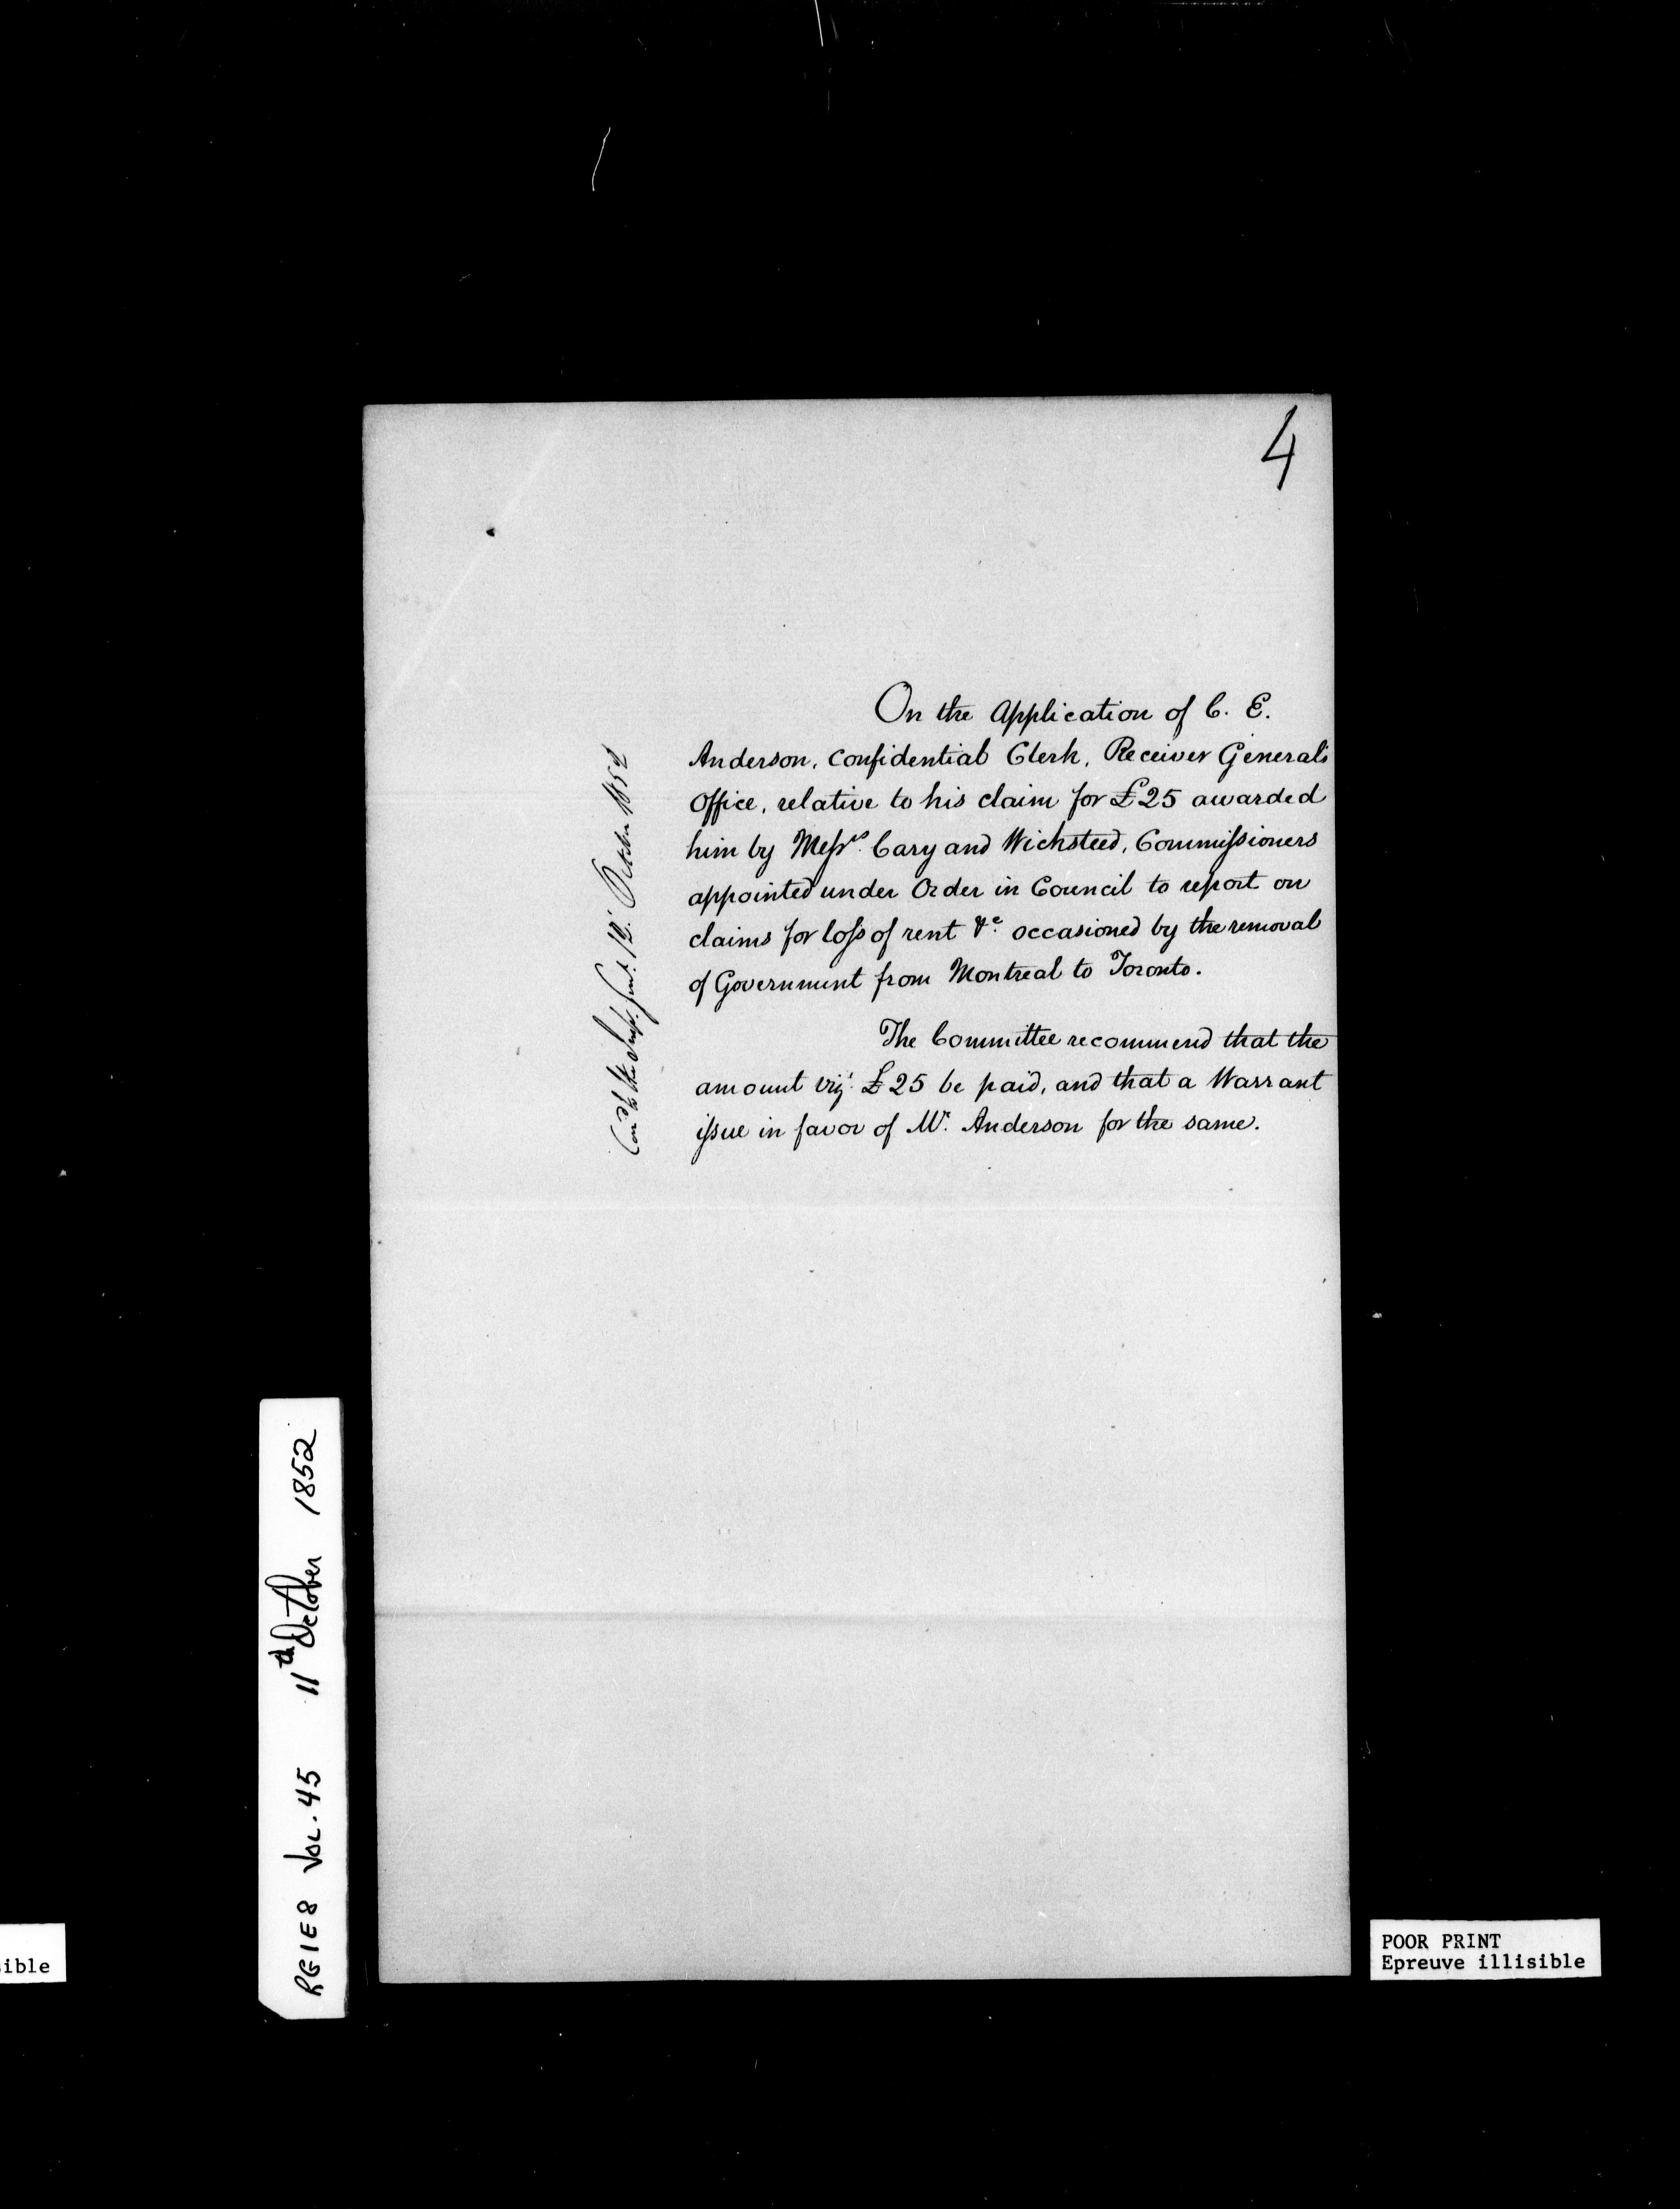 4
On the Application of C. E.
Anderson, Confidential Clerk, Receiver General's
Office, relative to his claim for £25 awarded
him by Messrs. Cary and Wicksteed, Commissioners
appointed under Order in Council to report on
claims for loss of rent &c. occasioned by the removal
of Government from Montreal to Toronto.
The Committee recommend that the
amount viz. £25 be paid, and that a Warrant
issue in favor of Mr. Anderson for the same.
to the Insp. Genl. 12. October 1852
RG1E8 VOL. 45 11th October 1852
POOR PRINT
Epreuve illisible
ible